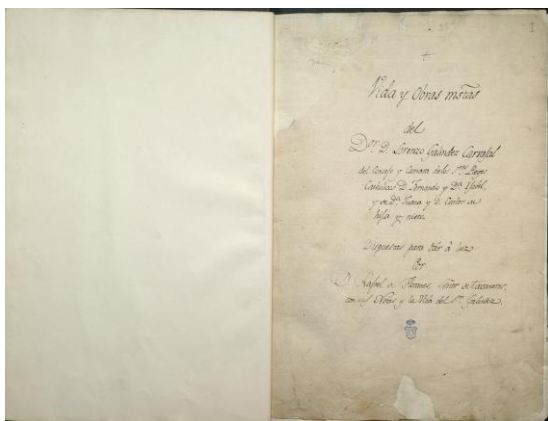 Vida y Obras mśtas
del
Dᵒʳ. D. Lorenzo Galindez Carvajal
del Consejo y Camara de los Sʳᵉˢ. Reyes
Catholicos D. Fernando y Dª. Isabel,
y de Dª. Juana y D. Carlos su
hija y nieto.
Dispuestas para dar à luz
Por
D. Rafael de Floranes, Señor de Tavaneros,
con sus Notas y la Vida del Sʳ. Galindez.